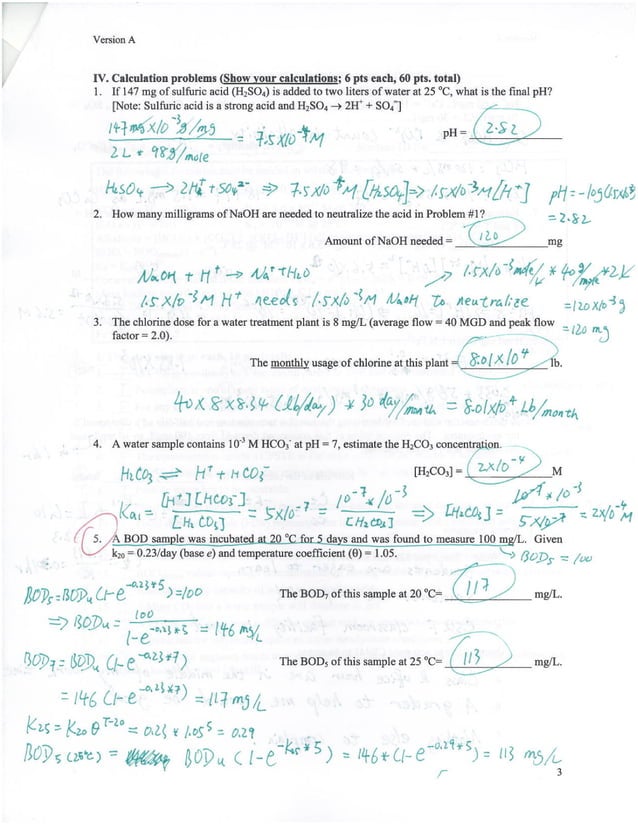 Version A
IV. Calculation problems (Show your calculations; 6 pts each, 60 pts. total)
1. If 147 mg of sulfuric acid (H₂SO₄) is added to two liters of water at 25 °C, what is the final pH?
[Note: Sulfuric acid is a strong acid and H₂SO₄ → 2H⁺ + SO₄⁻]
147 mg x10⁻³ g/mg
2L * 98g/mole
= 7.5x10⁻⁴ M
pH = 2.82
H₂SO₄ → 2H⁺ + SO₄²⁻ ⇒ 7.5x10⁻⁴ M [H₂SO₄] ⇒ 1.5x10⁻³ M [H⁺] pH = -log(1.5x10⁻³)
= 2.82
2. How many milligrams of NaOH are needed to neutralize the acid in Problem #1?
Amount of NaOH needed = 120 mg
NaOH + H⁺ → Na⁺ + H₂O 1.5x10⁻³ mole/L * 40g/mole * 2L
1.5x10⁻³ M H⁺ needs 1.5x10⁻³ M NaOH to neutralize = 120x10⁻³ g
= 120 mg
3. The chlorine dose for a water treatment plant is 8 mg/L (average flow = 40 MGD and peak flow
factor = 2.0).
The monthly usage of chlorine at this plant = 8.01x10⁴ lb.
40 x 8 x 8.34 (lb/day) * 30 day/month = 8.01x10⁴ Lb/month
4. A water sample contains 10⁻³ M HCO₃⁻ at pH = 7, estimate the H₂CO₃ concentration.
H₂CO₃ ⇌ H⁺ + HCO₃⁻
[H₂CO₃] = 2x10⁻⁴ M
Ka₁ = [H⁺][HCO₃⁻] / [H₂CO₃] = 5x10⁻⁷ = 10⁻⁷ * 10⁻³ / [H₂CO₃] ⇒ [H₂CO₃] = 10⁻⁷ * 10⁻³ / 5x10⁻⁷ = 2x10⁻⁴ M
5. A BOD sample was incubated at 20 °C for 5 days and was found to measure 100 mg/L. Given
k₂₀ = 0.23/day (base e) and temperature coefficient (θ) = 1.05.
→ BOD₅ = 100
BOD₅ = BODu (1-e^-0.23*5) = 100
The BOD₇ of this sample at 20 °C= 117 mg/L.
⇒ BODu = 100 / 1-e^-0.23*5 = 146 mg/L
BOD₇ = BODu (1-e^-0.23*7)
The BOD₅ of this sample at 25 °C= 113 mg/L.
= 146 (1-e^-0.23*7) = 117 mg/L
K₂₅ = K₂₀ θ^T-20 = 0.23 * 1.05⁵ = 0.29
BOD₅ (25°C) = BODu (1-e^-K₂₅*5) = 146*(1-e^-0.29*5) = 113 mg/L
3